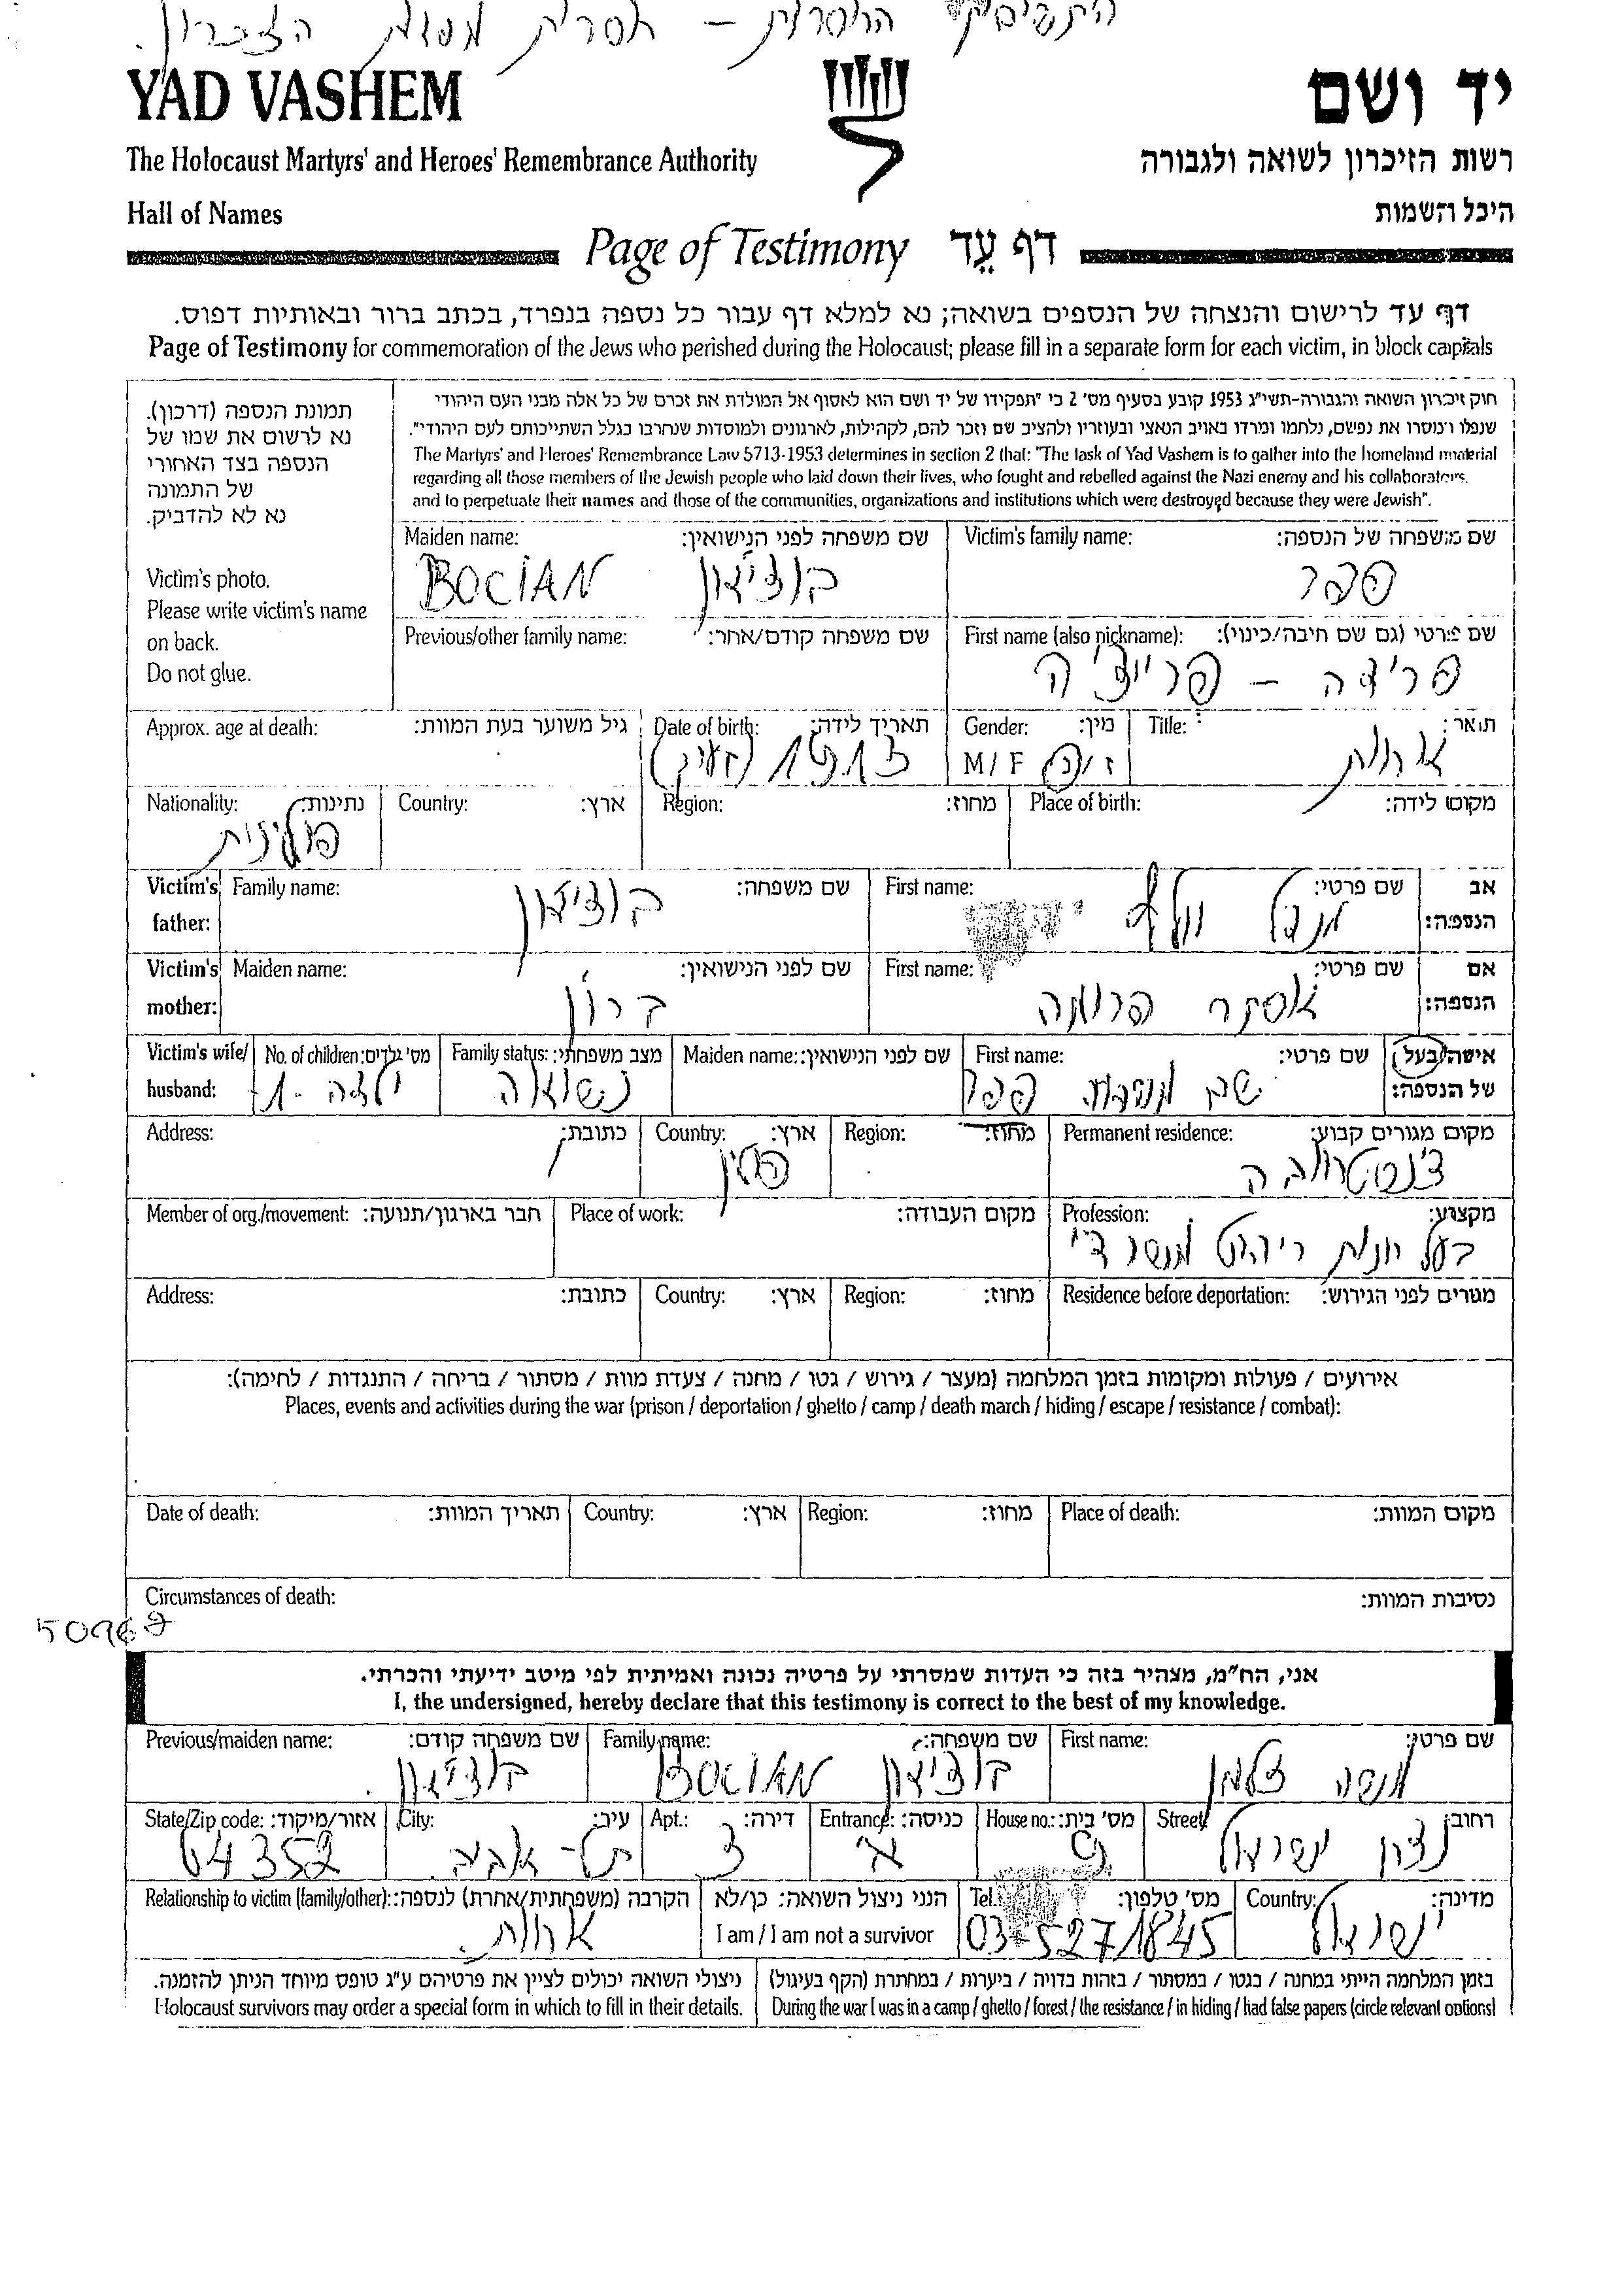 התשובות החסרות – חסרות מפאת הזכרון.
YAD VASHEM
יד ושם
The Holocaust Martyrs' and Heroes' Remembrance Authority
רשות הזיכרון לשואה ולגבורה
Hall of Names
היכל השמות
Page of Testimony דף עֵד
דף עד לרישום והנצחה של הנספים בשואה; נא למלא דף עבור כל נספה בנפרד, בכתב ברור ובאותיות דפוס.
Page of Testimony for commemoration of the Jews who perished during the Holocaust; please fill in a separate form for each victim, in block capitals
תמונת הנספה (דרכון).
נא לרשום את שמו של
הנספה בצד האחורי
של התמונה
נא לא להדביק.
Victim's photo.
Please write victim's name
on back.
Do not glue.
חוק זיכרון השואה והגבורה-תשי"ג 1953 קובע בסעיף מס' 2 כי "תפקידו של יד ושם הוא לאסוף אל המולדת את זכרם של כל אלה מבני העם היהודי
שנפלו ומסרו את נפשם, נלחמו ומרדו באויב הנאצי ובעוזריו ולהציב שם וזכר להם, לקהילות, לארגונים ולמוסדות שנחרבו בגלל השתייכותם לעם היהודי".
The Martyrs' and Heroes' Remembrance Law 5713-1953 determines in section 2 that: "The task of Yad Vashem is to gather into the homeland material
regarding all those members of the Jewish people who laid down their lives, who fought and rebelled against the Nazi enemy and his collaborators,
and to perpetuate their names and those of the communities, organizations and institutions which were destroyed because they were Jewish".
Victim's family name: שם משפחה של הנספה:
פפר
Maiden name: שם משפחה לפני הנישואין:
BOCIAN בוציאן
First name (also nickname): שם פרטי (גם שם חיבה/כינוי):
פרידה –
Previous/other family name: שם משפחה קודם/אחר:
Title: תואר:
אחות
Gender: מין:
M / F
Date of birth: תאריך לידה:
1913
Approx. age at death: גיל משוער בעת המוות:
Place of birth: מקום לידה:
Region: מחוז:
Country: ארץ:
Nationality: נתינות:
פולנית
Victim's father: אב הנספה:
First name: שם פרטי:
מנדל וולף
Family name: שם משפחה:
בוציאן
Victim's mother: אם הנספה:
First name: שם פרטי:
אסתר פרומה
Maiden name: שם לפני הנישואין:
ברון
Victim's wife/ husband: אישה/בעל של הנספה:
First name: שם פרטי:
שם משפחה פפר
Maiden name: שם לפני הנישואין:
Family status: מצב משפחתי:
נשואה
No. of children: מס' ילדים:
ילדה - 1
Permanent residence: מקום מגורים קבוע:
צ'נסטחובה
Region: מחוז:
Country: ארץ:
פולין
Address: כתובת:
Profession: מקצוע:
בעל חנות ריהוט משרדי
Place of work: מקום העבודה:
Member of org./movement: חבר בארגון/תנועה:
Residence before deportation: מגורים לפני הגירוש:
Region: מחוז:
Country: ארץ:
Address: כתובת:
אירועים / פעולות ומקומות בזמן המלחמה (מעצר / גירוש / גטו / מחנה / צעדת מוות / מסתור / בריחה / התנגדות / לחימה):
Places, events and activities during the war (prison / deportation / ghetto / camp / death march / hiding / escape / resistance / combat):
Place of death: מקום המוות:
Region: מחוז:
Country: ארץ:
Date of death: תאריך המוות:
Circumstances of death: נסיבות המוות:
אני, הח"מ, מצהיר בזה כי העדות שמסרתי על פרטיה נכונה ואמיתית לפי מיטב ידיעתי והכרתי.
I, the undersigned, hereby declare that this testimony is correct to the best of my knowledge.
First name: שם פרטי:
משה זלמן
Family name: שם משפחה:
BOCIAN בוציאן
Previous/maiden name: שם משפחה קודם:
בוציאן.
Street רחוב:
נצח ישראל
House no.: מס' בית:
9
Entrance: כניסה:
א
Apt.: דירה:
3
City: עיר:
תל-אביב
State/Zip code: אזור/מיקוד:
64352
Country: מדינה:
ישראל
Tel. מס' טלפון:
03-5271845
הנני ניצול השואה: כן/לא
I am / I am not a survivor
Relationship to victim (family/other): הקרבה (משפחתית/אחרת) לנספה:
אחות.
בזמן המלחמה הייתי במחנה / בגטו / במסתור / בזהות בדויה / ביערות / במחתרת (הקף בעיגול)
During the war I was in a camp / ghetto / forest / the resistance / in hiding / had false papers (circle relevant options)
ניצולי השואה יכולים לציין את פרטיהם ע"ג טופס מיוחד הניתן להזמנה.
Holocaust survivors may order a special form in which to fill in their details.